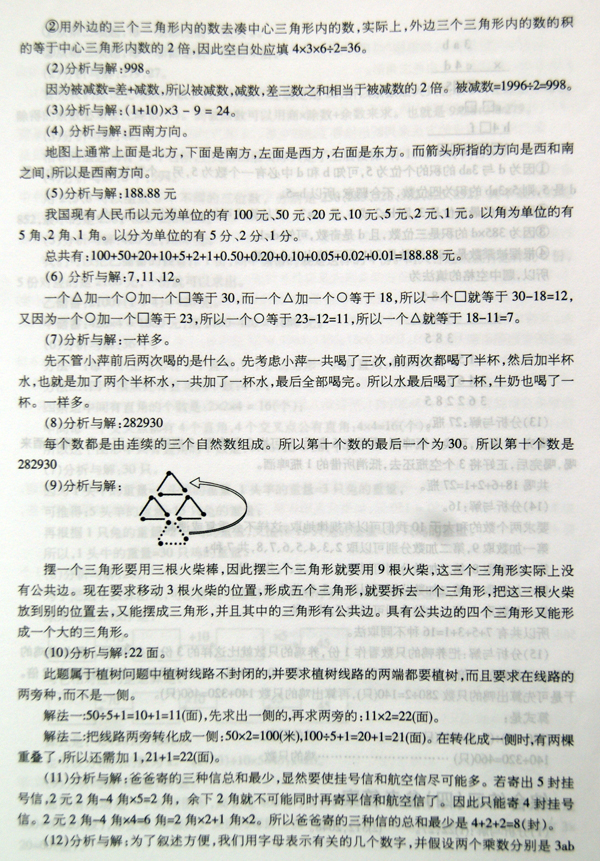 ②用外边的三个三角形内的数去凑中心三角形内的数,实际上,外边三个三角形内的数的积
的等于中心三角形内数的 2 倍,因此空白处应填 4×3×6÷2=36。
(2)分析与解:998。
因为被减数=差+减数,所以被减数,减数,差三数之和相当于被减数的 2 倍。被减数=1996÷2=998。
(3)分析与解:(1+10)×3 - 9 = 24。
(4) 分析与解:西南方向。
地图上通常上面是北方,下面是南方,左面是西方,右面是东方。而箭头所指的方向是西和南
之间,所以是西南方向。
(5)分析与解:188.88 元
我国现有人民币以元为单位的有 100 元、50 元、20 元、10 元、5 元、2 元、1 元。以角为单位的有
5 角、2 角、1 角。以分为单位的有 5 分、2 分、1 分。
总共有:100+50+20+10+5+2+1+0.50+0.20+0.10+0.05+0.02+0.01=188.88 元。
(6) 分析与解:7,11,12。
一个△加一个○加一个□等于 30,而一个△加一个○等于 18,所以一个□就等于 30-18=12,
又因为一个○加一个□等于 23,所以一个○等于 23-12=11,所以一个△就等于 18-11=7。
(7)分析与解:一样多。
先不管小萍前后两次喝的是什么。先考虑小萍一共喝了三次,前两次都喝了半杯,然后加半杯
水,也就是加了两个半杯水,一共加了一杯水,最后全部喝完。所以水最后喝了一杯,牛奶也喝了一
杯。一样多。
(8)分析与解:282930
每个数都是由连续的三个自然数组成。所以第十个数的最后一个为 30。所以第十个数是
282930
(9)分析与解:
摆一个三角形要用三根火柴棒,因此摆三个三角形就要用 9 根火柴,这三个三角形实际上没
有公共边。现在要求移动 3 根火柴的位置,形成五个三角形,就要拆去一个三角形,把这三根火柴
放到别的位置去,又能摆成三角形,并且其中的三角形有公共边。具有公共边的四个三角形又能形
成一个大的三角形。
(10)分析与解:22 面。
此题属于植树问题中植树线路不封闭的,并要求植树线路的两端都要植树,而且要求在线路的
两旁种,而不是一侧。
解法一:50÷5+1=10+1=11(面),先求出一侧的,再求两旁的:11×2=22(面)。
解法二:把线路两旁转化成一侧:50×2=100(米),100÷5+1=20+1=21(面)。在转化成一侧时,有两棵
重叠了,所以还需加 1,21+1=22(面)。
(11)分析与解:爸爸寄的三种信总和最少,显然要使挂号信和航空信尽可能多。若寄出 5 封挂
号信,2 元 2 角-4 角×5=2 角，余下 2 角就不可能同时再寄平信和航空信了。因此只能寄 4 封挂号
信。2 元 2 角-4 角×4=6 角=2 角×2+1 角×2。所以爸爸寄的三种信的总和最少是 4+2+2=8(封)。
(12)分析与解:为了叙述方便,我们用字母表示有关的几个数字,并假设两个乘数分别是 3ab